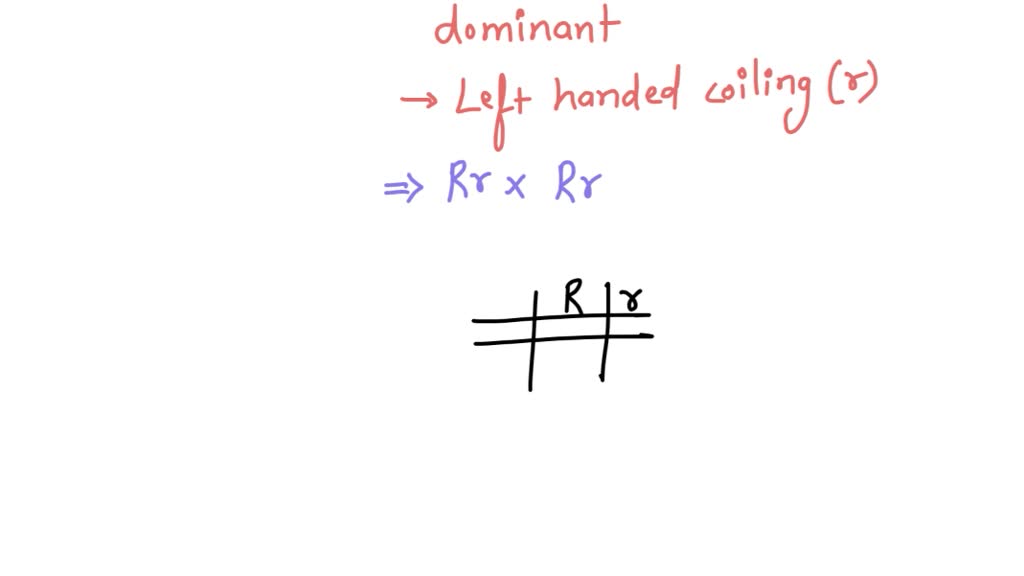 dominant
→ Left handed coiling (r)
⇒ Rr × Rr
R r